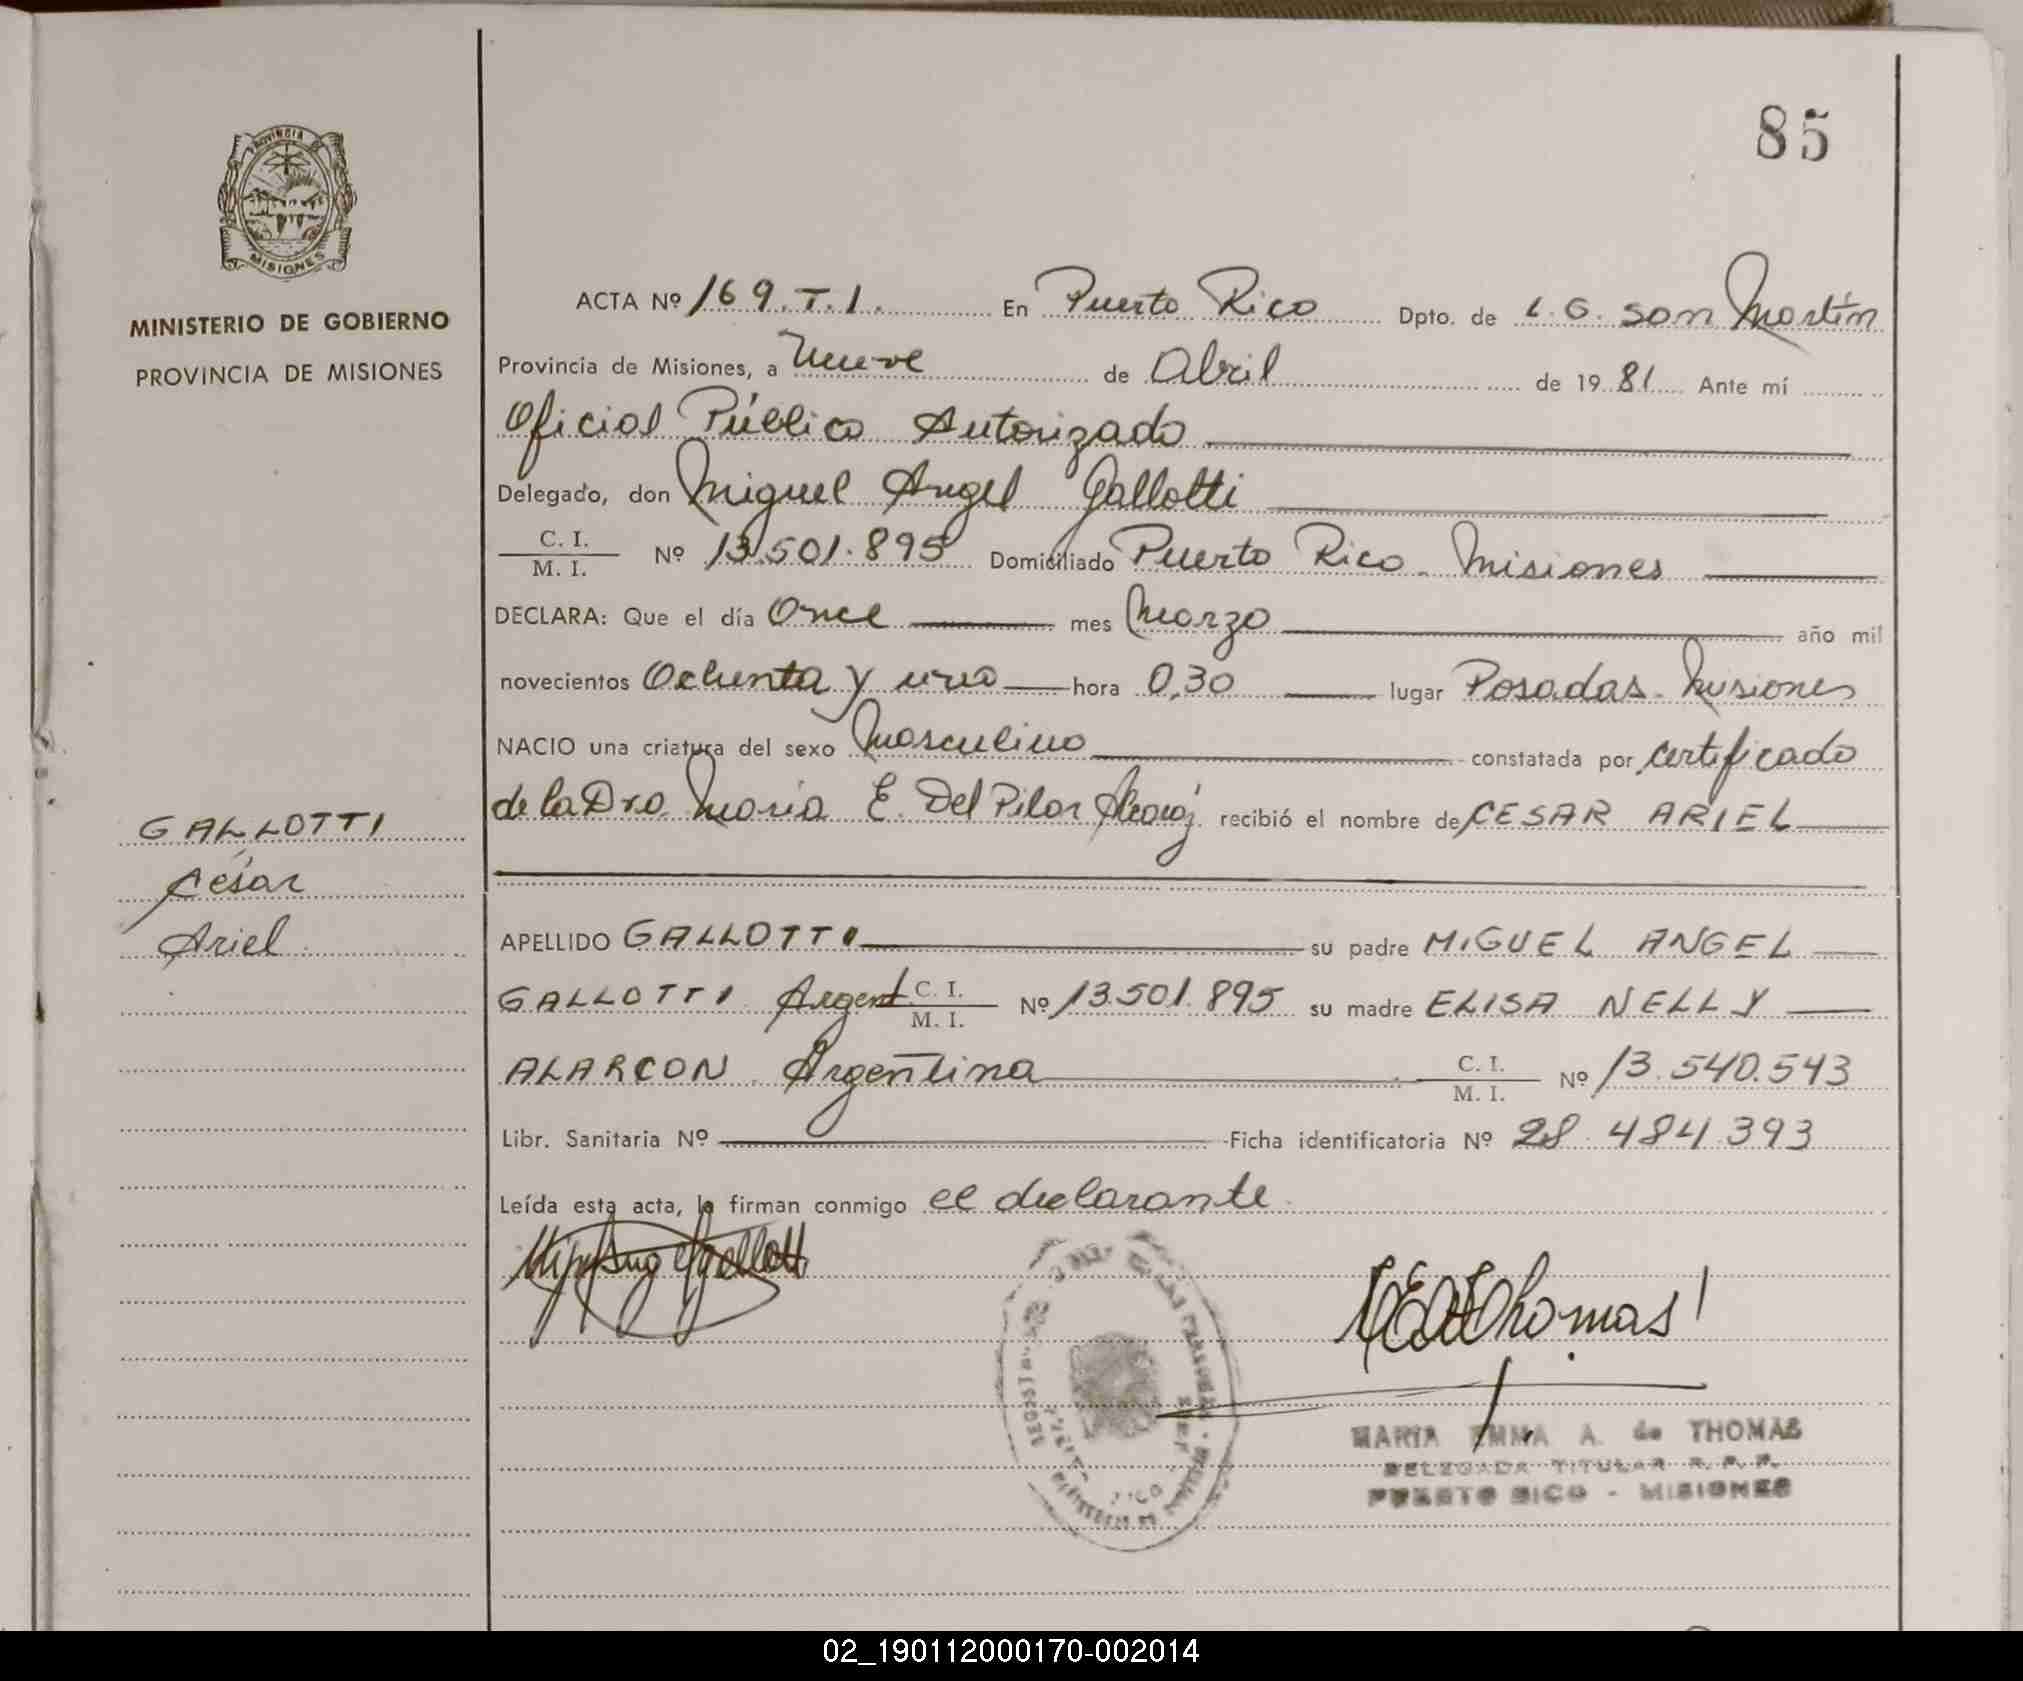 85
PROVINCIA DE
MISIONES
MINISTERIO DE GOBIERNO
PROVINCIA DE MISIONES
GALLOTTI
César
Ariel
ACTA Nº 169.T.1. En Puerto Rico Dpto. de L.G. San Martín
Provincia de Misiones, a Nueve de Abril de 1981 Ante mí
Oficial Público Autorizado
Delegado, don Miguel Angel Gallotti
C. I.
M. I. Nº 13.501.895 Domiciliado Puerto Rico. Misiones
DECLARA: Que el día Once mes Marzo año mil
novecientos Ochenta y uno hora 0,30 lugar Posadas. Misiones
NACIO una criatura del sexo Masculino constatada por certificado
de la Dra. María E. Del Pilar recibió el nombre de CESAR ARIEL
APELLIDO GALLOTTI su padre MIGUEL ANGEL
GALLOTTI Argent C. I.
M. I. Nº 13.501.895 su madre ELISA NELLY
ALARCON. Argentina C. I.
M. I. Nº 13.540.543
Libr. Sanitaria Nº Ficha identificatoria Nº 28.484.393
Leída esta acta, la firman conmigo el declarante.
Thomas
MARIA EMMA A. de THOMAS
DELEGADA TITULAR R. P. P.
PUERTO RICO - MISIONES
02_190112000170-002014